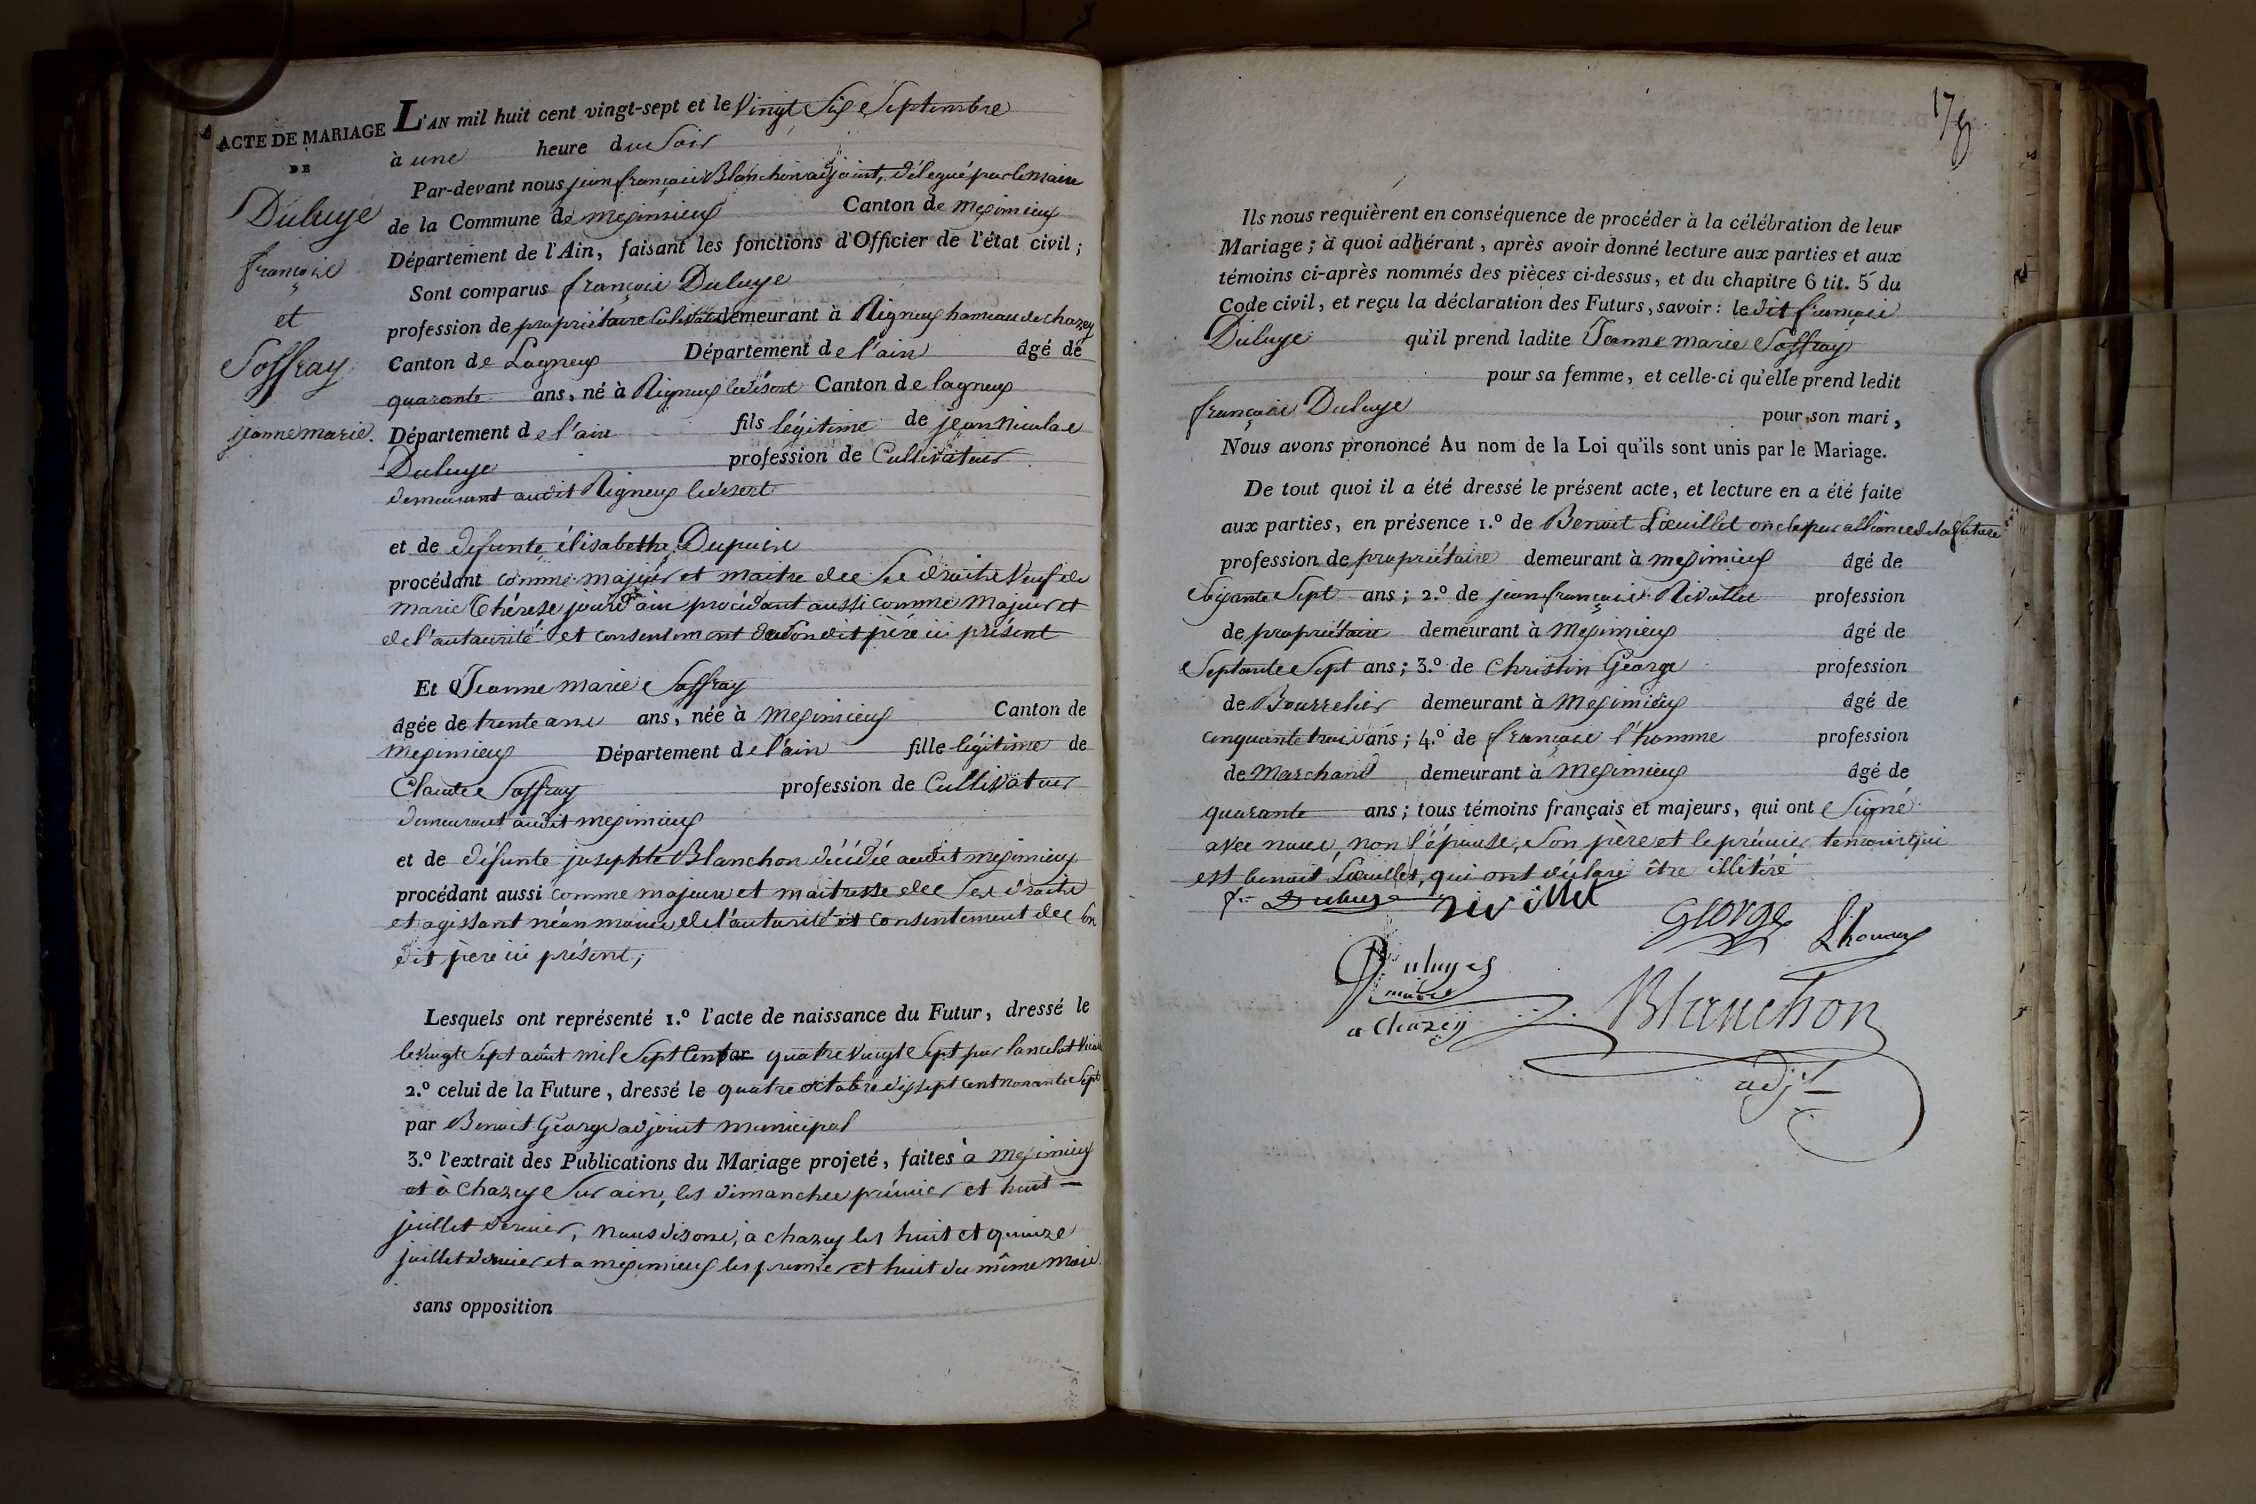 ACTE DE MARIAGE
DE
Duluye
françois
et
Soffray
jeanne marie.
L'AN mil huit cent vingt-sept et le Vingt Six Septembre
à une heure du Soir
Par-devant nous jean françois Blanchon adjoint, délegué par le maire
de la Commune de meximieux Canton de meximieux
Département de l'Ain, faisant les fonctions d'Officier de l'état civil;
Sont comparus françois Duluye
profession de propriétaire Cultivateur demeurant à Rigneux hameau de chazey
Canton de Lagneux Département de l'ain âgé de
quarante ans, né à Rigneux ledésert Canton de lagneux
Département de l'ain fils légitime de jean Nicolas
Duluye profession de Cultivateur
demeurant audit Rigneux ledesert
et de defunte élisabethe Dupuis
procédant comme majeur et maitre de Se droits Veuf de
marie Thérese jourdain procédant aussi comme Majeur et
de l'autaurité et consentement de Son dit père ici présent
Et Jeanne marie Soffray
âgée de trente ans ans, née à Meximieux Canton de
Meximieux Département de l'ain fille légitime de
Claude Soffray profession de Cultivateur
demeurant audit meximieux
et de défunte josephte Blanchon décédée audit meximieux
procédant aussi comme majeure et maitresse de Ses droits
et agissant néanmoins de l'autorité et consentement de Son
dit père ici présent;
Lesquels ont représenté 1.º l'acte de naissance du Futur, dressé le
le vingt Sept août mil Sept Cent par quatre vingt Sept par lancelot
2.º celui de la Future, dressé le quatre octobre dix sept cent nonante Sept
par Benoit George adjoint municipal
3.º l'extrait des Publications du Mariage projeté, faites à meximieux
et à Chazey Sur ain, les dimanches prémier et huit
juillet dernier, nous disons, à chazey les huit et quinze
juillet dernier et a meximieux les premier et huit du même mois
sans opposition
178
Ils nous requièrent en conséquence de procéder à la célébration de leur
Mariage; à quoi adhérant, après avoir donné lecture aux parties et aux
témoins ci-après nommés des pièces ci-dessus, et du chapitre 6 tit. 5 du
Code civil, et reçu la déclaration des Futurs, savoir: le dit françois
Duluye qu'il prend ladite Jeanne marie Soffray
pour sa femme, et celle-ci qu'elle prend ledit
françois Duluye pour son mari,
Nous avons prononcé Au nom de la Loi qu'ils sont unis par le Mariage.
De tout quoi il a été dressé le présent acte, et lecture en a été faite
aux parties, en présence 1.º de Benoit Lœuillet oncle par alliance de la future
profession de propriétaire demeurant à meximieux âgé de
Soixante Sept ans; 2.º de jean françois Rivollet profession
de propriétaire demeurant à Meximieux âgé de
Septante Sept ans; 3.º de Christin George profession
de Bourrelier demeurant à Meximieux âgé de
cinquante trois ans; 4.º de françois l'homme profession
de Marchand demeurant à Meximieux âgé de
quarante ans; tous témoins français et majeurs, qui ont Signé
avec nous, non l'épouse, Son père et le prémier temoin qui
est benoit Lœuillet, qui ont déclaré être illitéré
f.s Duluye
George
Lhomme
Duluyes
maire
a Chazey
Blanchon
adj.t